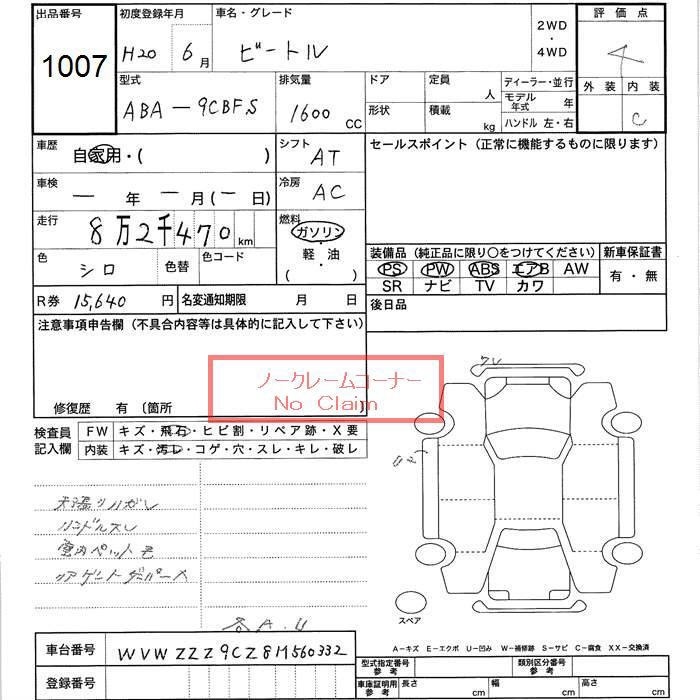 出品番号 1007
初度登録年月 H20 6月
車名・グレード ビートル
2WD・4WD
評価点 4
外装 内装 C
型式 ABA-9CBFS
排気量 1600 CC
ドア
定員 人
形状
積載 kg
ディーラー・並行
モデル年式 年
ハンドル 左・右
車歴 自家用・( )
シフト AT
セールスポイント (正常に機能するものに限ります)
車検 ー 年 ー 月(ー日)
冷房 AC
走行 8万2千470 km
燃料 ガソリン・軽油・( )
色 シロ 色替 色コード
装備品 (純正品に限り○をつけてください)
新車保証書
PS PW ABS エアB AW
有・無
SR ナビ TV カワ
R券 15,640円
名変通知期限 月 日
後日品
注意事項申告欄 (不具合内容等は具体的に記入して下さい)
ノークレームコーナー
No Claim
修復歴 有 〔箇所 〕
検査員記入欄
FW キズ・飛石・ヒビ割・リペア跡・X要
内装 キズ・汚レ・コゲ・穴・スレ・キレ・破レ
天張りハガレ
ハンドルスレ
室内ペット毛
リアゲートダンパー
各A.U
ワレ
スペア
A-キズ E-エクボ U-凹み W-補修跡 S-サビ C-腐食 XX-交換済
車台番号 WVWZZZ9CZ8M560332
登録番号
型式指定番号 参考
類別区分番号 参考
車庫証明用 参考 長さ cm 幅 cm 高さ cm